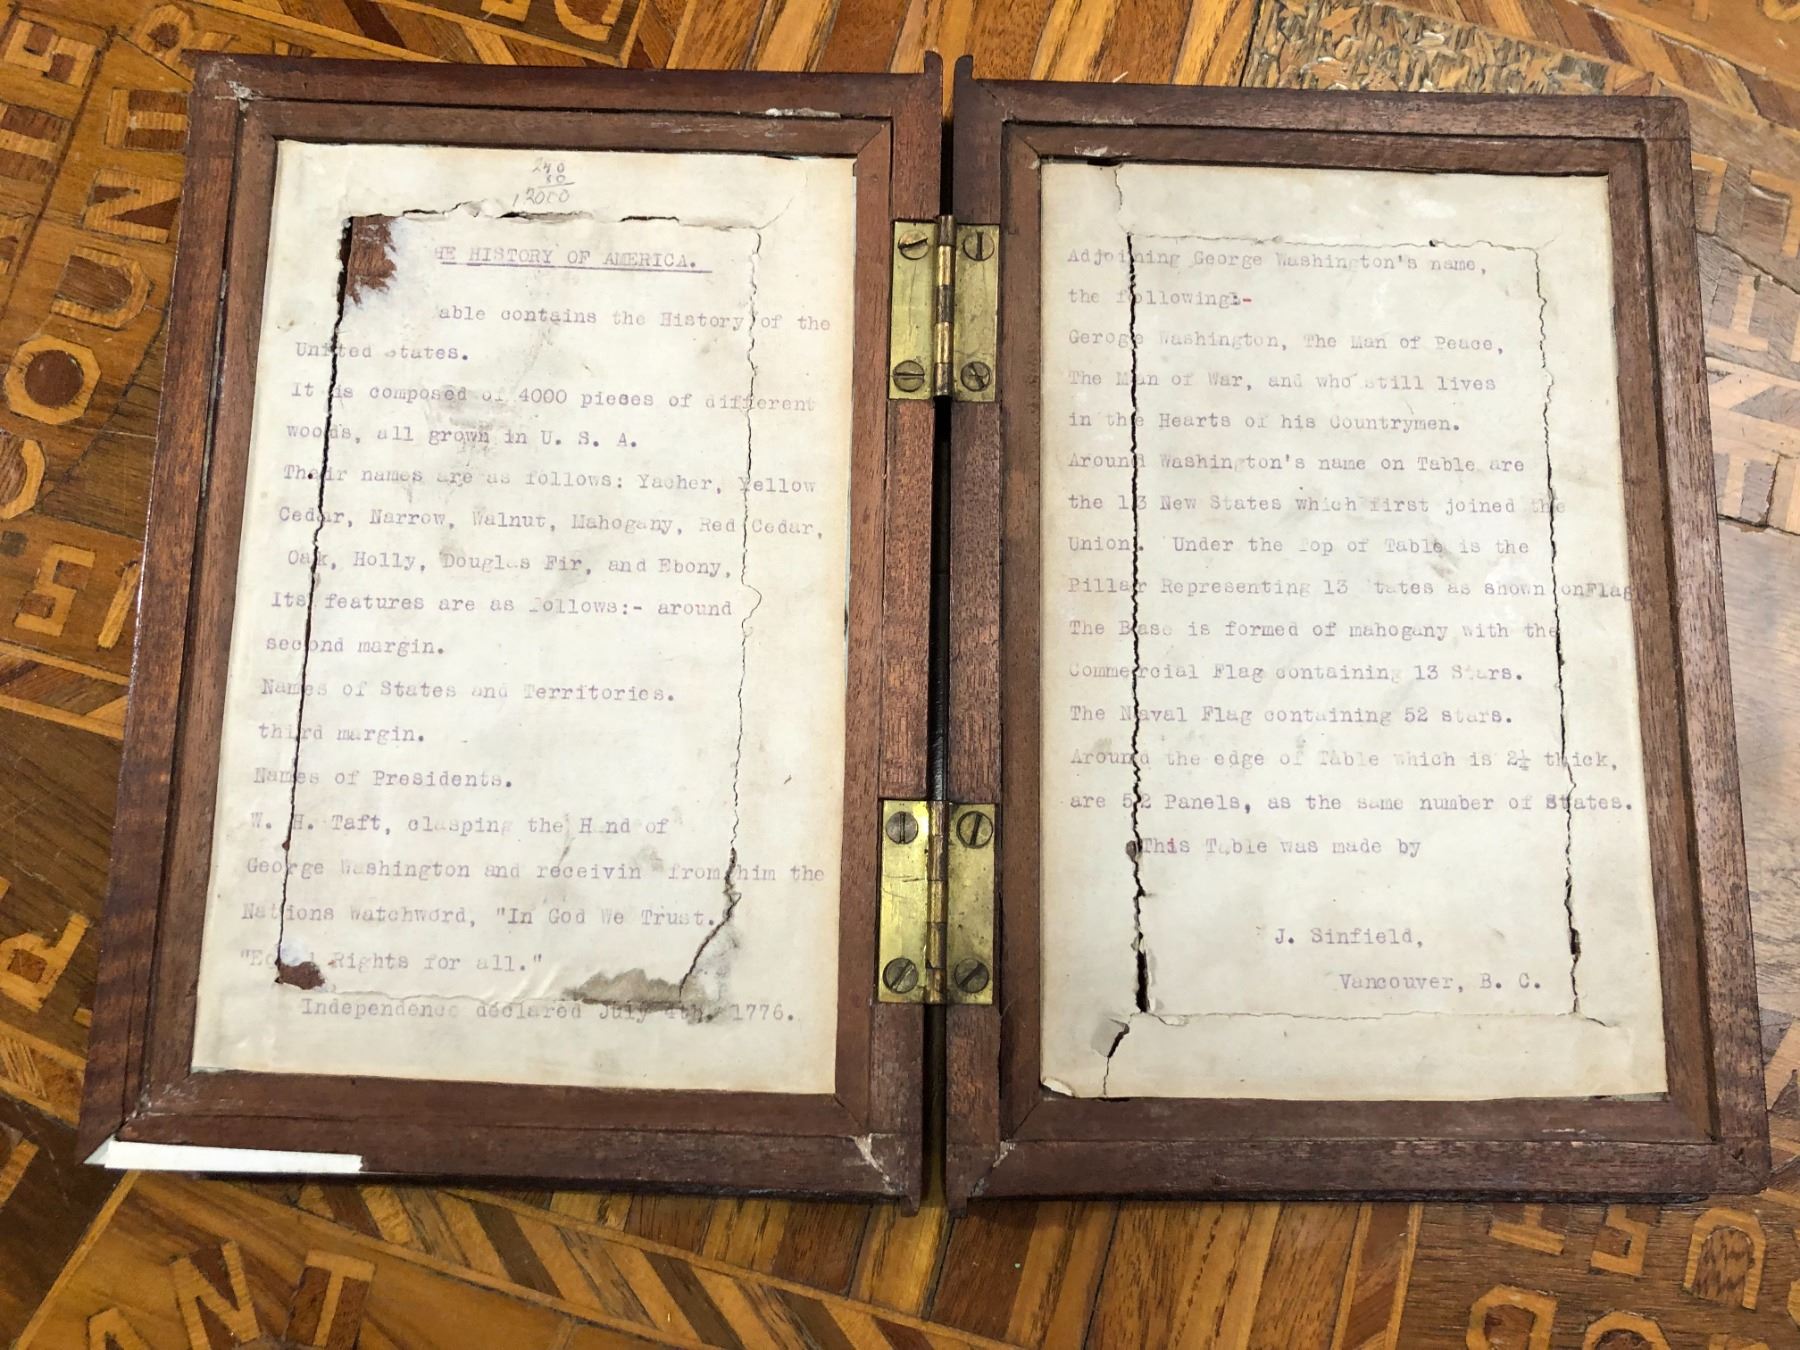 240
50
12000
HE HISTORY OF AMERICA.
able contains the History of the
United States.
It is composed of 4000 pieces of different
woods, all grown in U. S. A.
Their names are as follows: Yacher, Yellow
Cedar, Narrow, Walnut, Mahogany, Red Cedar,
Oak, Holly, Douglas Fir, and Ebony,
Its features are as follows:- around
second margin.
Names of States and Territories.
third margin.
Names of Presidents.
W. H. Taft, clasping the Hand of
George Washington and receivin from him the
Nations Watchword, "In God We Trust.
"Equal Rights for all."
Independence declared July 4th, 1776.
Adjoining George Washington's name,
the following:-
Geroge Washington, The Man of Peace,
The Man of War, and who still lives
in the Hearts of his Countrymen.
Around Washington's name on Table are
the 13 New States which first joined the
Union. Under the Top of Table is the
Pillar Representing 13 tates as shown onFlag
The Base is formed of mahogany with the
Commercial Flag containing 13 Stars.
The Naval Flag containing 52 stars.
Around the edge of Table which is 2¼ thick,
are 52 Panels, as the same number of States.
This Table was made by
J. Sinfield,
Vancouver, B. C.